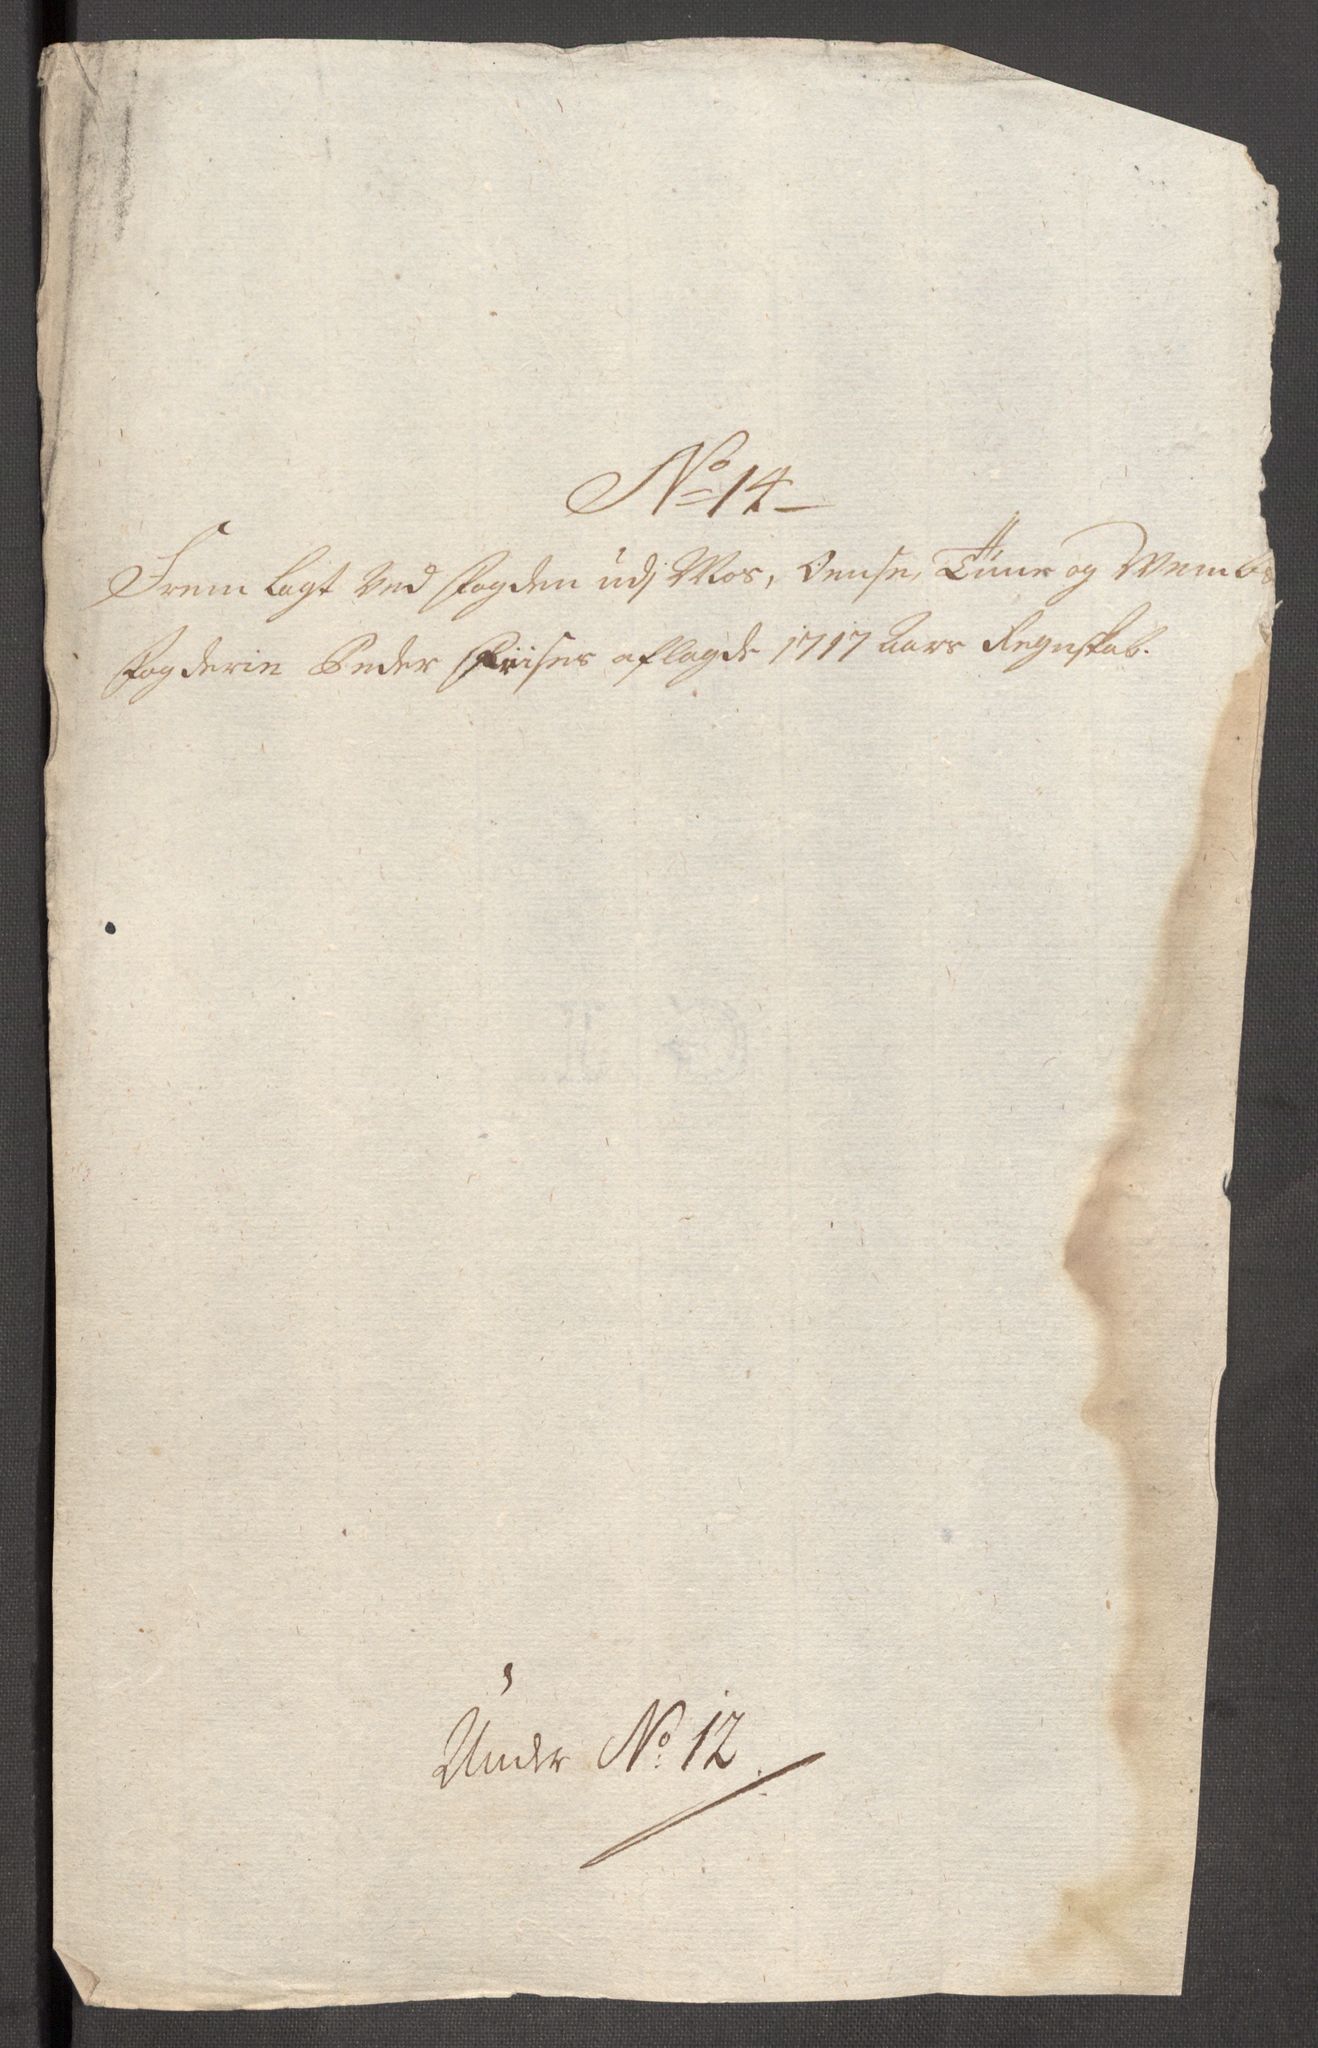 No 14
Frem lagt ved Fogden udj Mos, Onse, Tune og Wemb
Fogderie Peder Friises aflagde 1717 Aars Regnskab.
Under No 12